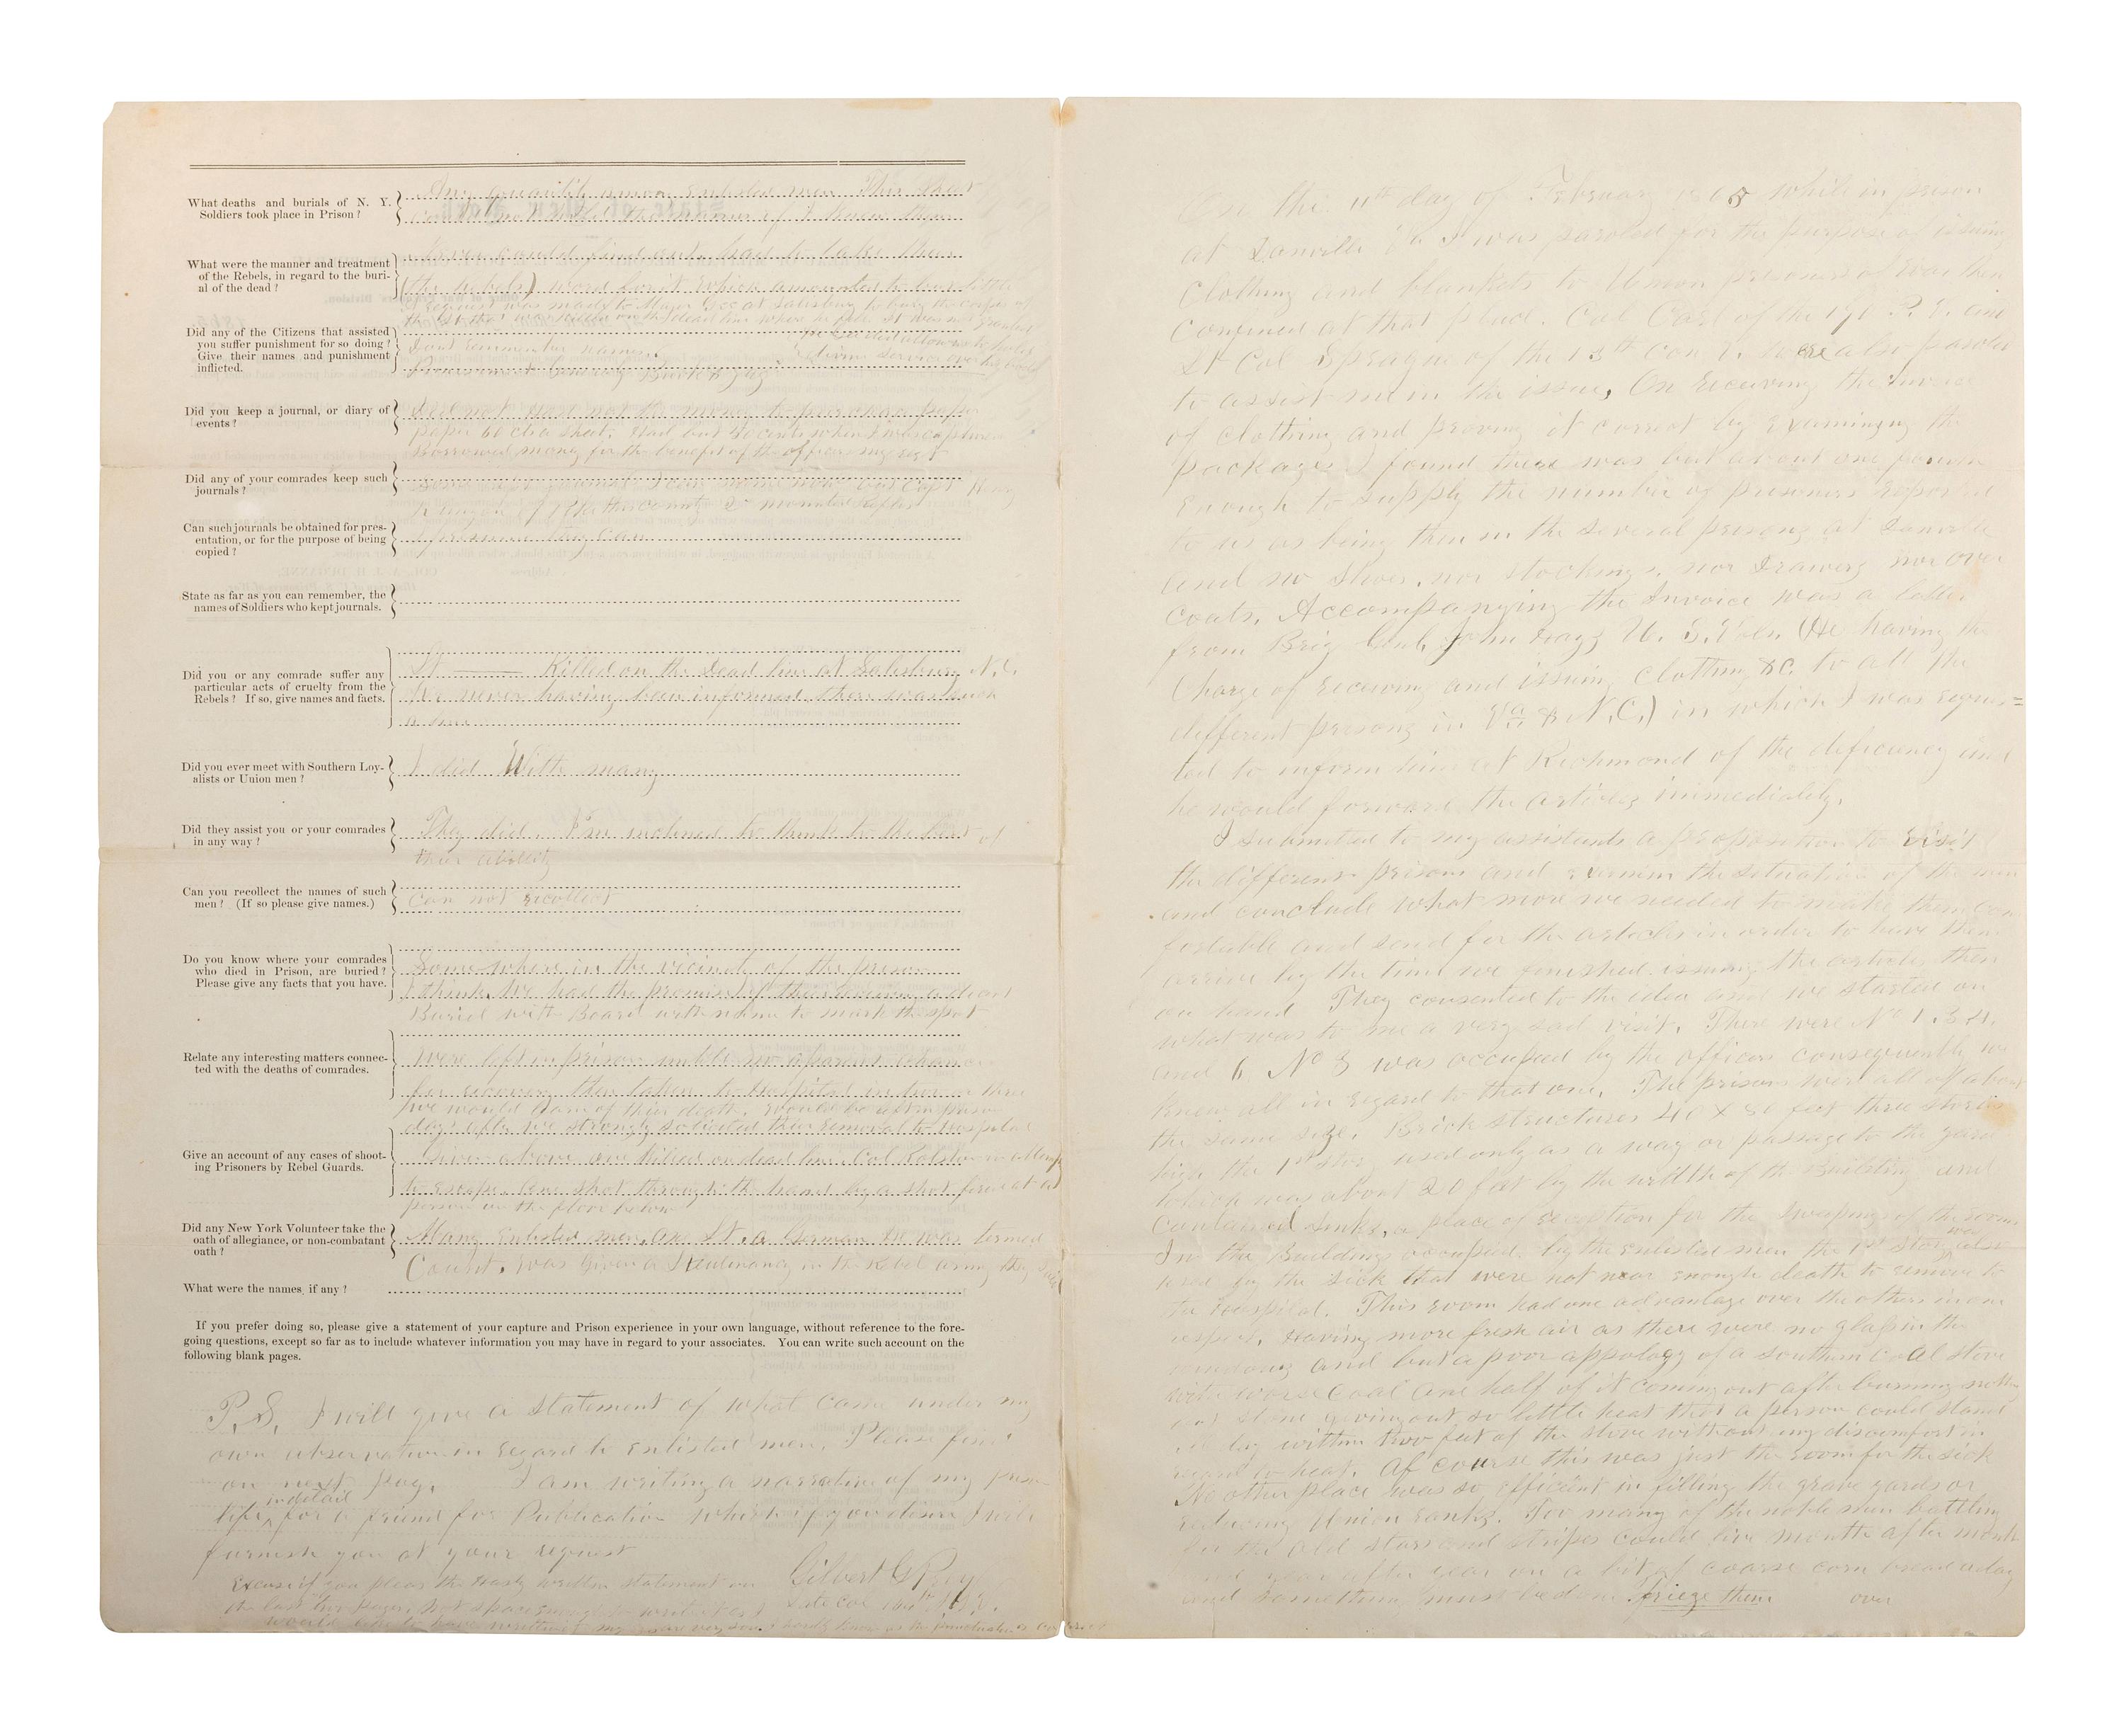 What deaths and burials of N. Y.
Soldiers took place in Prison ?
Any quantity among Enlisted men This
What were the manner and treatment
of the Rebels, in regard to the buri-
al of the dead ?
never could find out. had to take their
(the rebels) word for it which amounted to but little
request was made to Major Gee at Salisbury to bury the corpse of
the Lt that was killed on the dead line it was not granted
Did any of the Citizens that assisted
you suffer punishment for so doing ?
Give their names and punishment
inflicted.
Dont remember names.
divine service over his body
Did you keep a journal, or diary of
events ?
Did not. Had not the money to purchase paper
paper 60 cts a sheet. Had but 40 cents when I was captured
Borrowed money for the benefit of the officers my self
Did any of your comrades keep such
journals ?
Can such journals be obtained for pres-
entation, or for the purpose of being
copied ?
I presume they can
State as far as you can remember, the
names of Soldiers who kept journals.
Did you or any comrade suffer any
particular acts of cruelty from the
Rebels ? If so, give names and facts.
Lt —— Killed on the Dead line at Salisbury N.C.
he never having been informed there was such
a line
Did you ever meet with Southern Loy-
alists or Union men ?
I did With many
Did they assist you or your comrades
in any way ?
They did. I'm inclined to think to the best of
their ability
Can you recollect the names of such
men ? (If so please give names.)
Can not recollect
Do you know where your comrades
who died in Prison, are buried ?
Please give any facts that you have.
Somewhere in the vicinity of the prison
I think. We had the promise of their receiving a decent
Burial with Board with name to mark the spot
Relate any interesting matters connec-
ted with the deaths of comrades.
Were left in prison until no aparent chance
for recovery then taken to Hospital in two or three
days after we strongly solicited their removal to Hospital
Give an account of any cases of shoot-
ing Prisoners by Rebel Guards.
Given above one killed on dead line. Col Ralston in attempt
to escape. One shot through the hand by a shot fired at a
person on the floor below
Did any New York Volunteer take the
oath of allegiance, or non-combatant
oath ?
Many Enlisted men, one Lt. a German he was termed
Count. was given a Lieutenancy in the Rebel army they
What were the names, if any ?
If you prefer doing so, please give a statement of your capture and Prison experience in your own language, without reference to the fore-
going questions, except so far as to include whatever information you may have in regard to your associates. You can write such account on the
following blank pages.
P.S. I will give a statement of what came under my
own observation in regard to enlisted men. Please find
on next page. I am writing a narrative of my prison
in detail
life for a friend for Publication which if you desire I will
furnish you at your request
Excuse if you please the hasty written statement on
the last two pages. Not space enough to write it as I
would like to have written
Gilbert G
the 11th day of February 1865 while in prison
at Danville Va I was paroled for the purpose of issuing
Clothing and blankets to Union prisoners of war then
Confined at that place. Col of the 191 P. V. and
Lt Col Sprague of the 13th Con V. were also paroled
to assist me in the issue. On receiving the invoice
of clothing and proving it correct by examining the
packages I found there was but about one
enough to supply the number of prisoners reported
to us as being then in the several prisons at Danville
and no Shoes, nor stockings, nor Drawers nor over
Coats. Accompanying the Invoice was a letter
from Brig Genl. John Hays U. S. Vols. (He having the
Charge of receiving and issuing Clothing &c. to all the
different prisons in Va & N.C.) in which I was reques=
ted to inform him at Richmond of the deficiency and
he would forward the articles immediately.
I submitted to my assistants a proposition to visit
the different prisons and examin the situation of the men
and conclude what more we needed to make them com
fortable and send for the articles in order to have them
arrive by the time we finished issuing the articles then
on hand They consented to the idea and we started on
what was to me a very sad visit. There were No 1. 3. 4.
and 6 No 3 was occupied by the officers consequently we
knew all in regard to that one. The prisons were all of about
the same size. Brick structures 40 X 80 feet three stories
high the 1st story used only as a way or passage to the yard
which was about 20 feet by the width of the Building and
Contained sinks, a place of reception for the sweepings of the rooms
In the Buildings occupied by the enlisted men the 1st story was also
used by the sick that were not near enough death to remove to
the hospital. This room had one advantage over the others in one
respect. Having more fresh air as there were no glass in the
windows and but a poor appology of a southern coal stove
with worse coal one half of it coming out after burning nothing
but stone giving out so little heat that a person could stand
within two feet of the stove without any discomfort in
regard to heat. Of course this was just the room for the sick
No other place was so efficient in filling the grave yards or
reducing Union ranks. Too many of the noble men battling
for the old stars and stripes could live month after month
and year after year on a bit of coarse corn bread a day
and something must be done. frieze them over